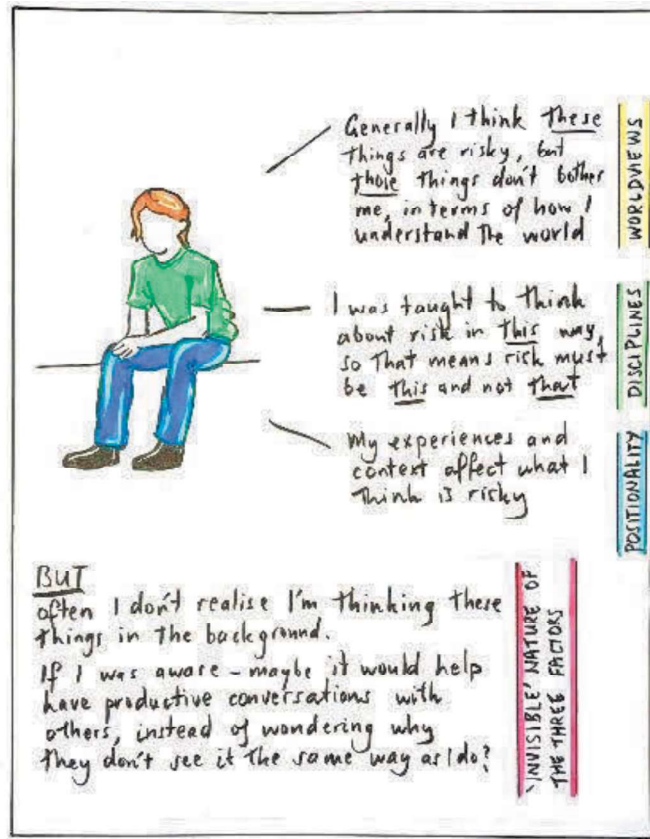 Generally I think these
things are risky, but
those things don't bother
me, in terms of how I
understand the world
WORLDVIEWS
I was taught to think
about risk in this way,
so that means risk must
be this and not that
DISCIPLINES
My experiences and
context affect what I
think is risky
POSITIONALITY
BUT
often I don't realise I'm thinking these
things in the background.
If I was aware – maybe it would help
have productive conversations with
others, instead of wondering why
they don't see it the same way as I do?
'INVISIBLE' NATURE OF
THE THREE FACTORS